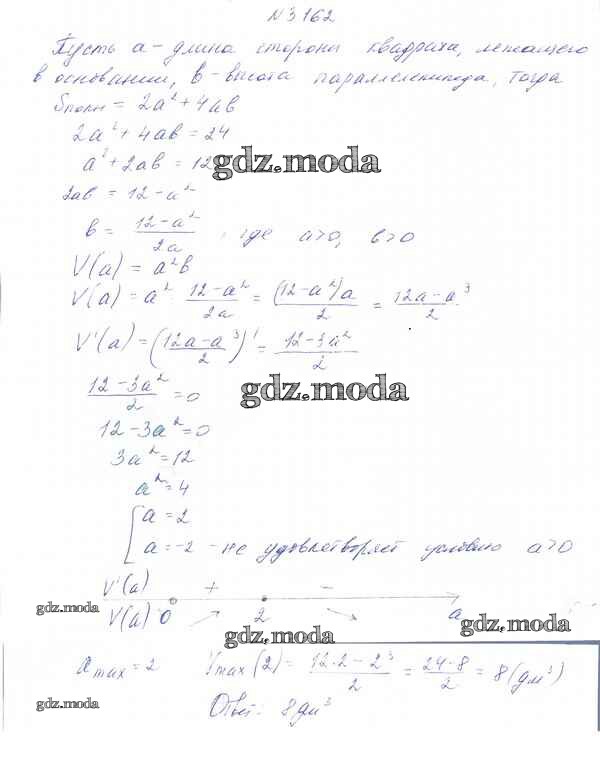 №3162
Пусть a - длина стороны квадрата, лежащего
в основании, b - высота параллелепипеда, тогда
Sполн = 2a² + 4ab
2a² + 4ab = 24
a² + 2ab = 12
gdz.moda
2ab = 12 - a²
b = (12 - a²)/(2a), где a>0, b>0
V(a) = a²b
V(a) = a² · (12 - a²)/(2a) = ((12 - a²)a)/2 = (12a - a³)/2
V'(a) = ((12a - a³)/2)' = (12 - 3a²)/2
(12 - 3a²)/2 = 0
gdz.moda
12 - 3a² = 0
3a² = 12
a² = 4
[a = 2
a = -2 - не удовлетворяет условию a>0
V'(a) + -
gdz.moda
V(a) 0 ↗ 2 ↘ a
gdz.moda
a max = 2 Vmax(2) = (12·2 - 2³)/2 = (24 - 8)/2 = 8 (дм³)
gdz.moda
Ответ: 8 дм³